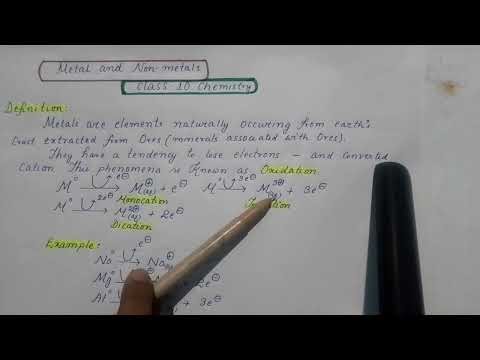 Metal and Non-metals
Class 10 Chemistry
Definition:
Metals are elements naturally occuring from earth's
Crust extracted from Ores (minerals associated with Ores).
They have a tendency to lose electrons – and converted
Cation. This phenomena is known as Oxidation
M° e⊖ → M⊕(g) + e⊖ M° 3e⊖ → M3⊕(g) + 3e⊖
Monocation
M° 2e⊖ → M2⊕(g) + 2e⊖
Dication
Example:
Na° e⊖ → Na⊕
Mg° 2e⊖
Al° + 3e⊖